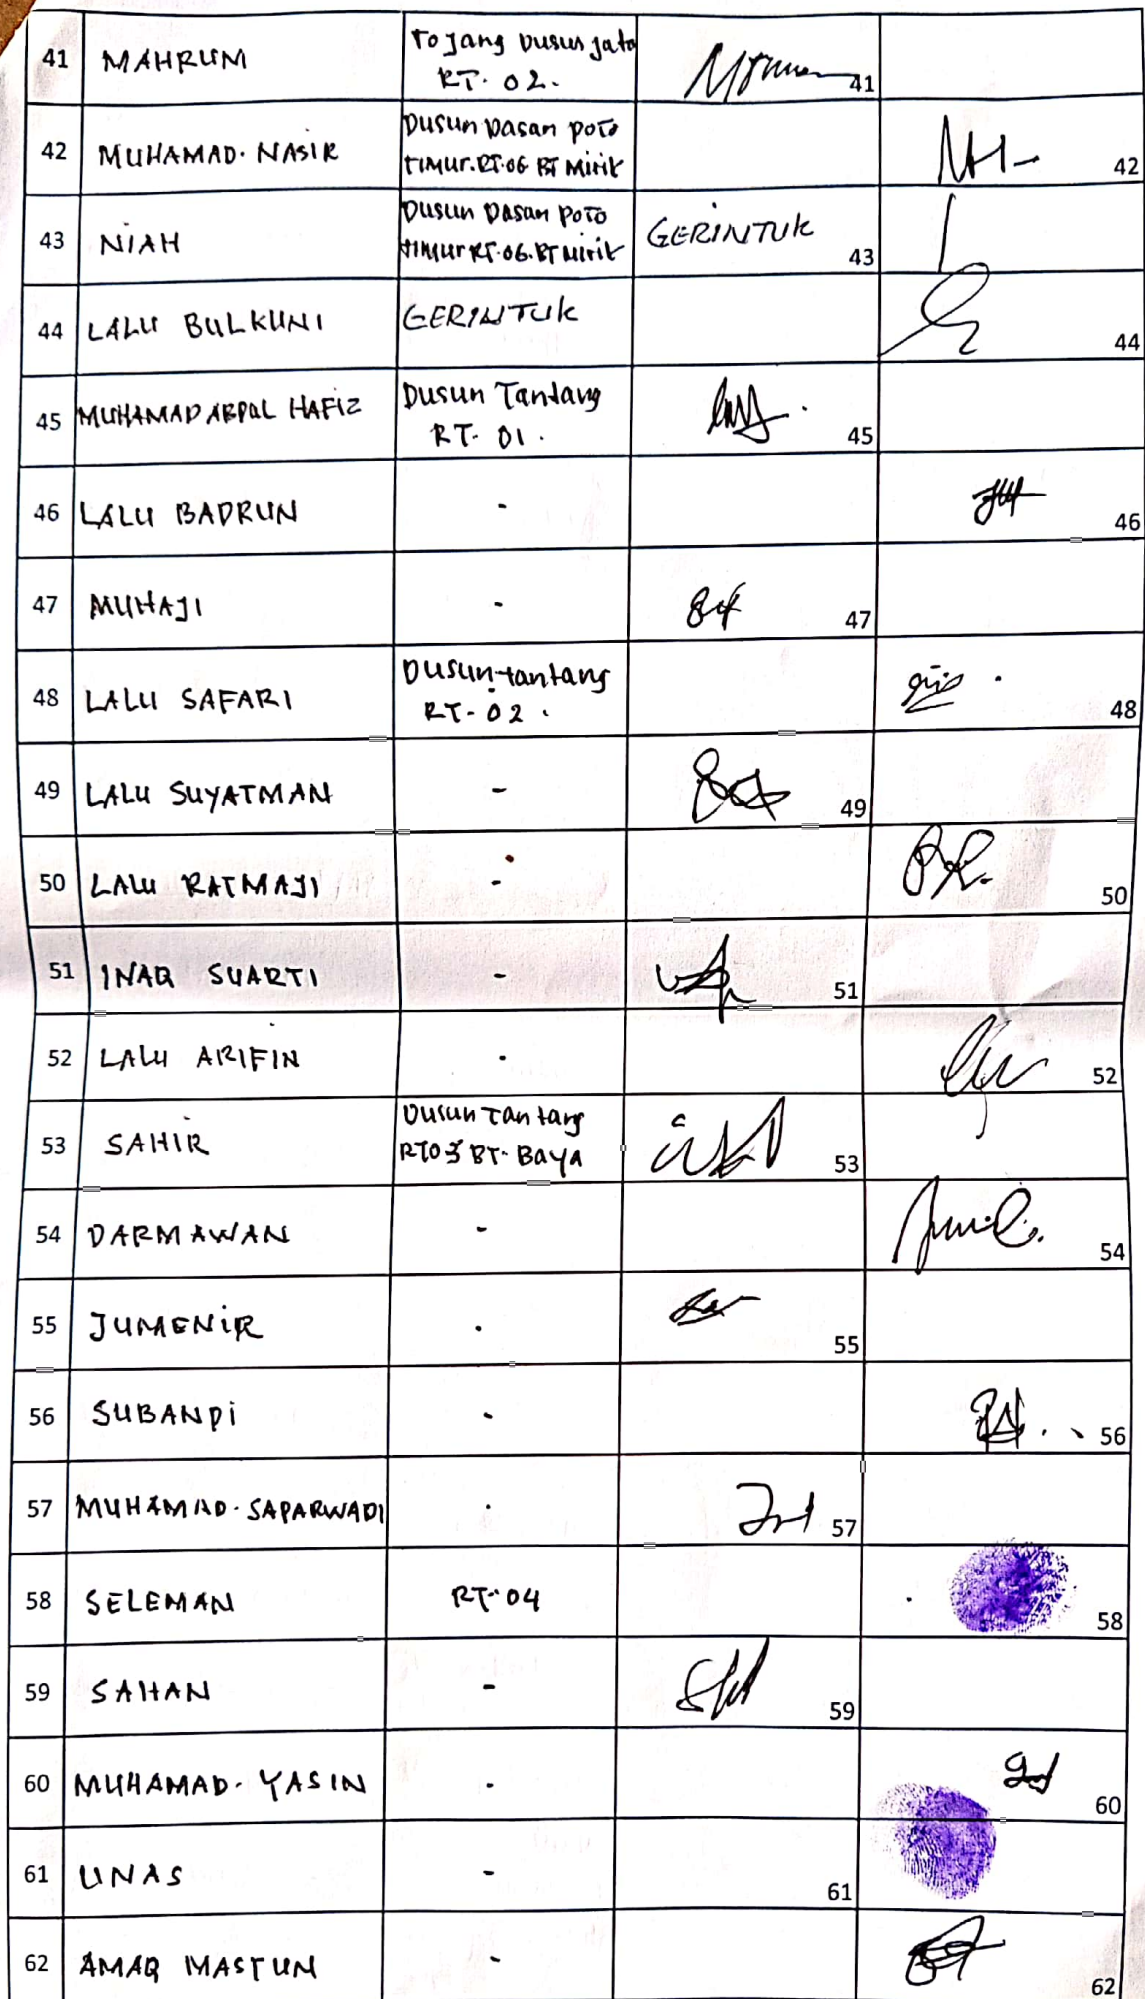 41 MAHRUM Tojang Dusun jato
RT. 02. 41
42 MUHAMAD. NASIR Dusun Dasan poto
TIMUR. RT. 06 BT Mirik 42
43 NIAH Dusun Dasan poto GERINTUK
timur RT. 06. BT Mirik 43
44 LALU BULKUNI GERINTUK 44
45 MUHAMAD ARPOL HAFIZ Dusun Tantang
RT. 01. 45
46 LALU BADRUN - 46
47 MUHAJI - 47
48 LALU SAFARI Dusun tantang
RT- 02. 48
49 LALU SUYATMAN - 49
50 LALU RATMAJI - 50
51 INAQ SUARTI - 51
52 LALU ARIFIN - 52
53 SAHIR Dusun Tantang
RT03 BT. BAYA 53
54 DARMAWAN - 54
55 JUMENIR . 55
56 SUBANDI - 56
57 MUHAMAD. SAPARWADI . 57
58 SELEMAN RT. 04 58
59 SAHAN - 59
60 MUHAMAD. YASIN - 60
61 UNAS - 61
62 AMAQ MASTUN - 62